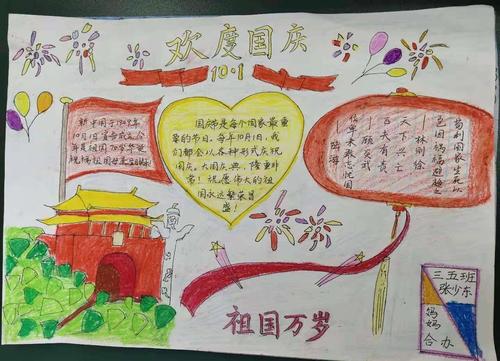 欢度国庆
10·1
新中国于1949年
10月1日宣告成立今
年是祖国70岁华诞
祝福祖国
国庆节是每个国家最重
要的节日。每年10月1日,我
们都会以各种形式庆祝
国庆。大国庆典,隆重非
常!祝愿伟大的祖
国永远繁荣昌
盛!
苟利国家生死以
岂因祸福避趋之
——林则徐
天下兴亡
匹夫有责
——顾炎武
位卑未敢忘忧国
——陆游
祖国万岁
三五班
张少东
妈妈
合办